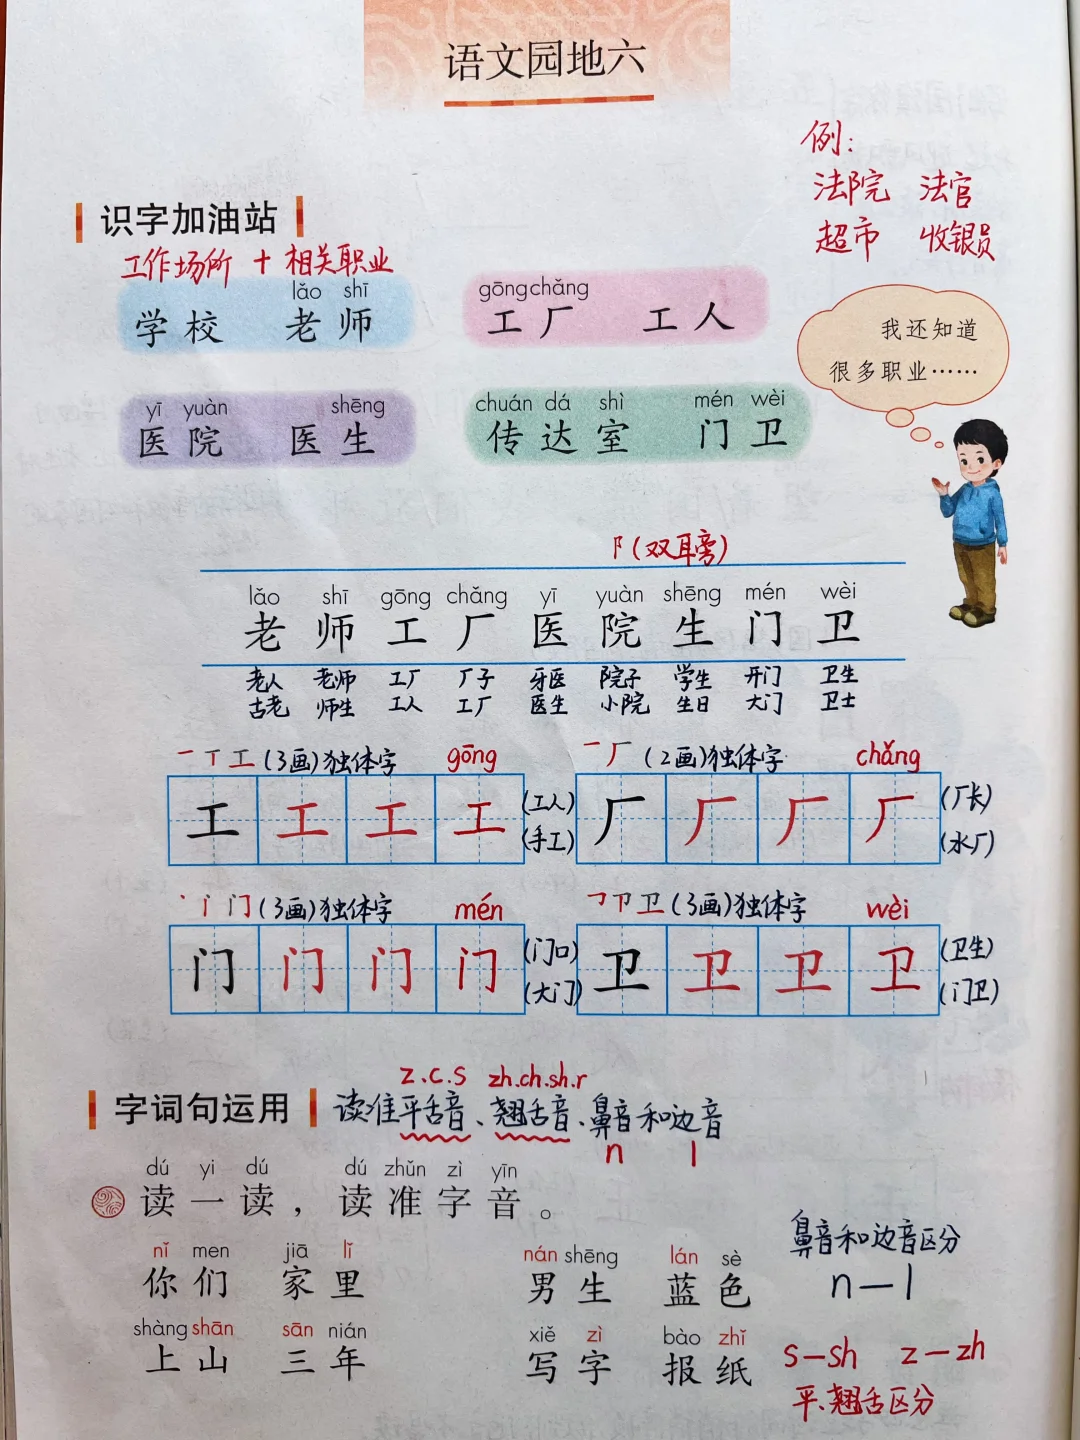 语文园地六
例：
法院 法官
超市 收银员
识字加油站
工作场所 + 相关职业
lǎo shī
学校 老师
gōng chǎng
工厂 工人
我还知道
很多职业……
yī yuàn shēng
医院 医生
chuán dá shì mén wèi
传达室 门卫
阝(双耳旁)
lǎo shī gōng chǎng yī yuàn shēng mén wèi
老 师 工 厂 医 院 生 门 卫
老人 老师 工厂 厂子 牙医 院子 学生 开门 卫生
古老 师生 工人 工厂 医生 小院 生日 大门 卫士
一 丅 工 (3画)独体字 gōng
工 工 工 工 (工人)
(手工)
一 厂 (2画)独体字 chǎng
厂 厂 厂 厂 (厂长)
(水厂)
丶 门 (3画)独体字 mén
门 门 门 门 (门口)
(大门)
乛 卩 卫 (3画)独体字 wèi
卫 卫 卫 卫 (卫生)
(门卫)
z.c.s zh.ch.sh.r
字词句运用 读准平舌音、翘舌音、鼻音和边音
n l
dú yi dú dú zhǔn zì yīn
读一读，读准字音。
nǐ men jiā lǐ nán shēng lán sè
你们 家里 男生 蓝色
shàng shān sān nián xiě zì bào zhǐ
上山 三年 写字 报纸
鼻音和边音区分
n—l
s—sh z—zh
平、翘舌区分